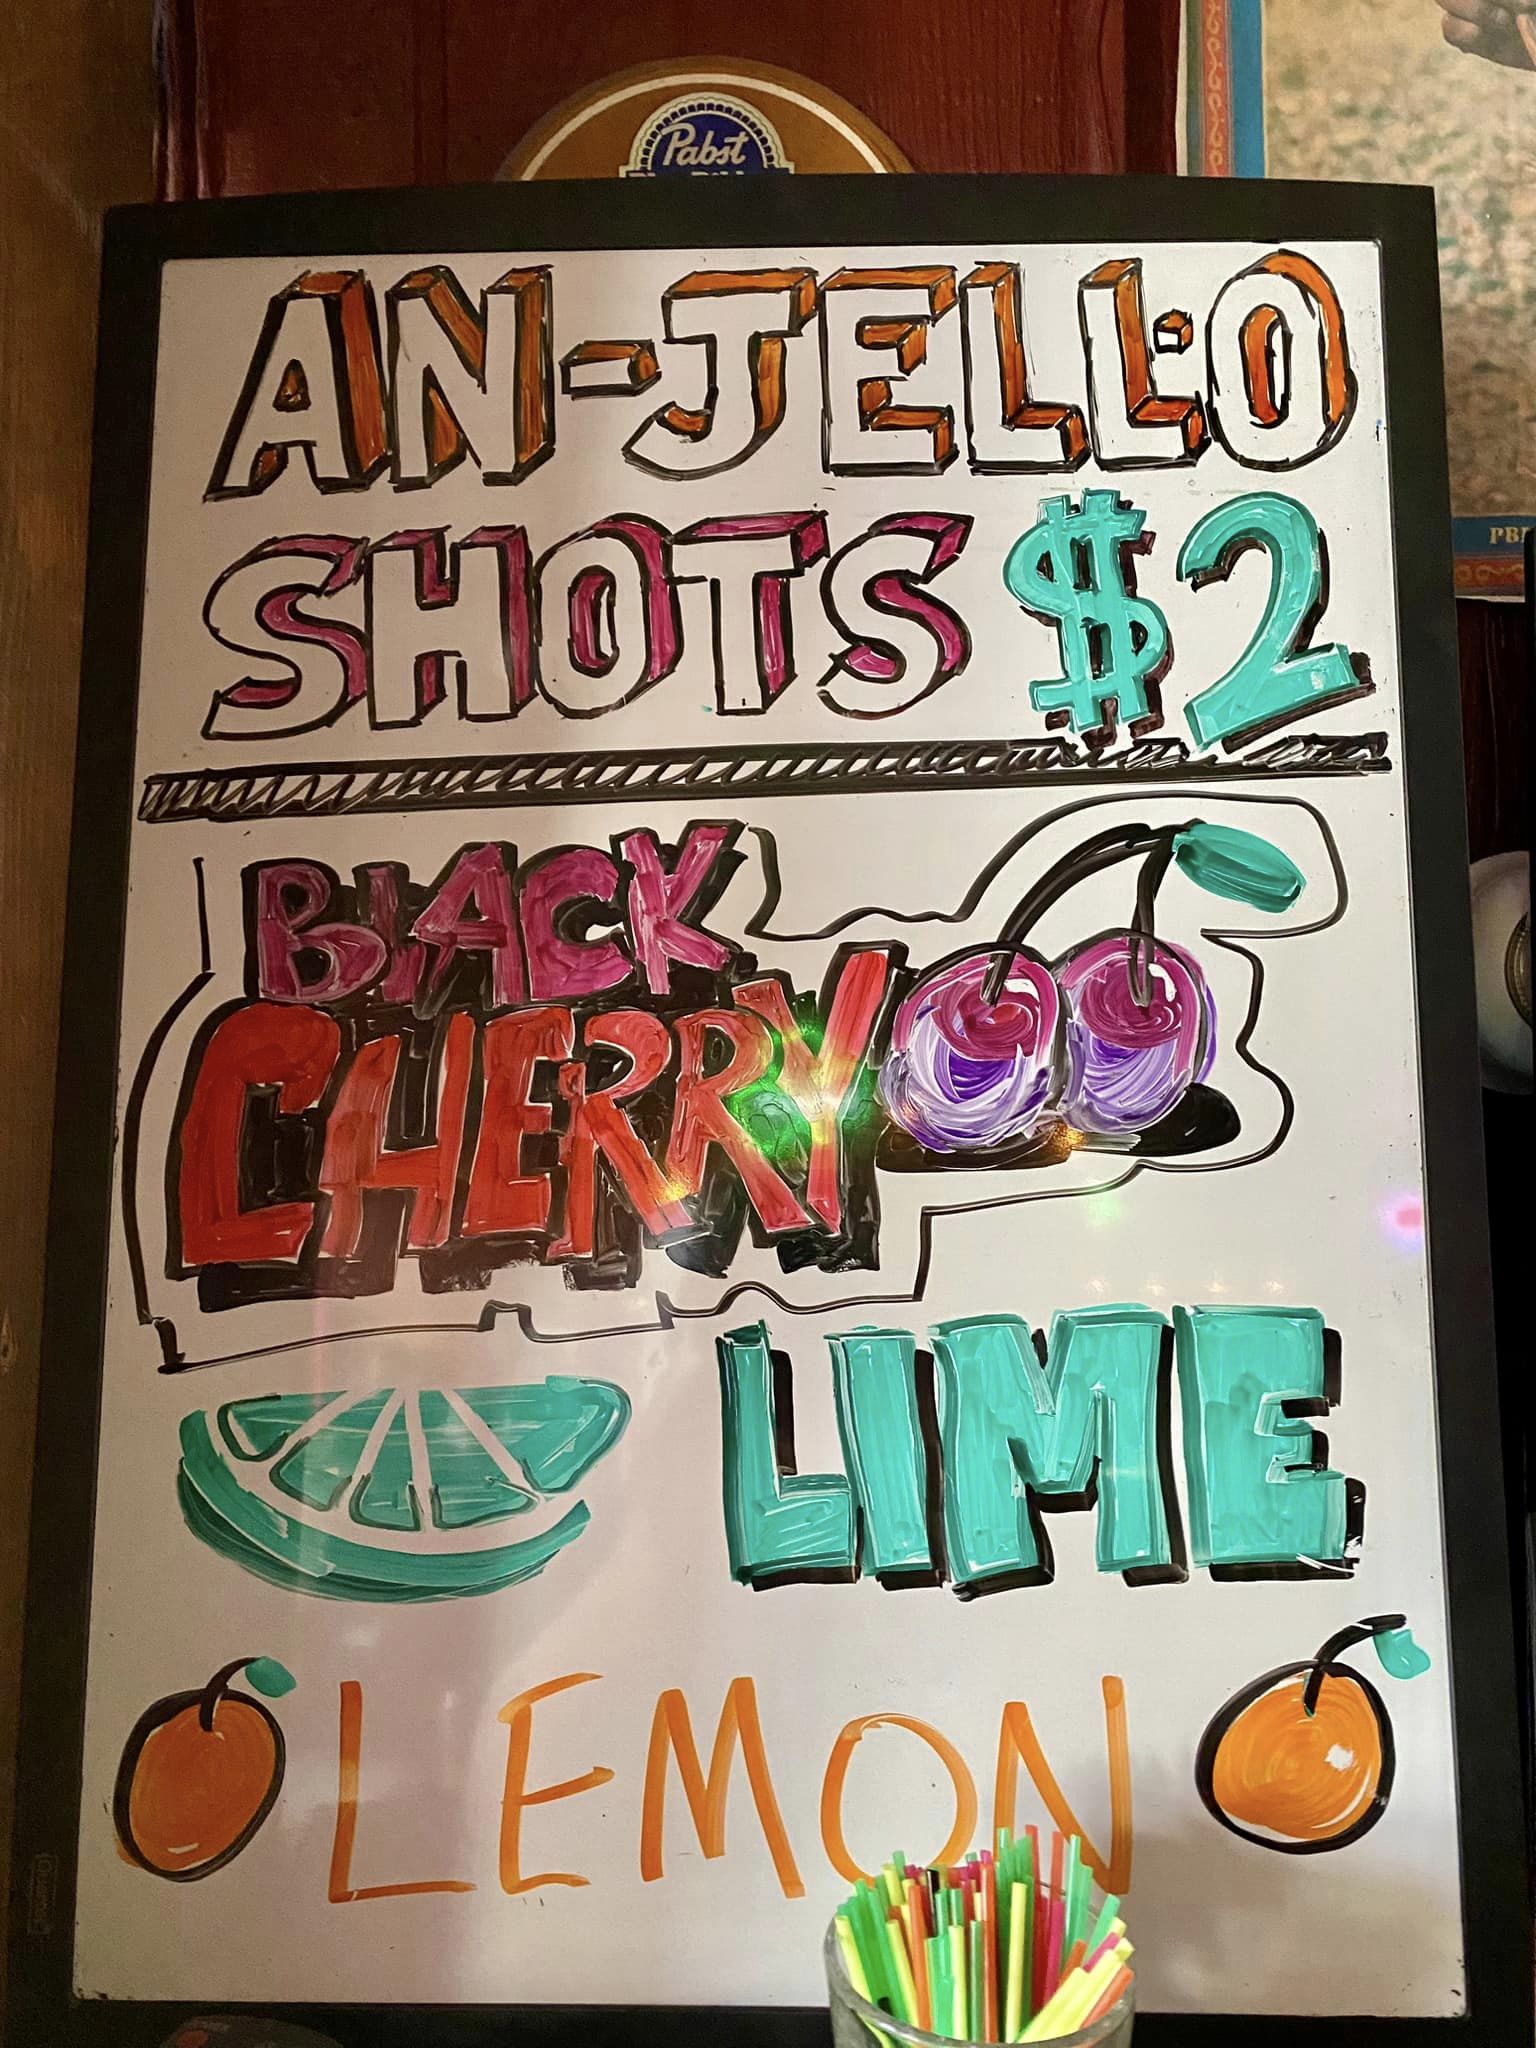 Pabst
AN-JELL·O
SHOTS $2
BLACK
CHERRY
LIME
LEMON